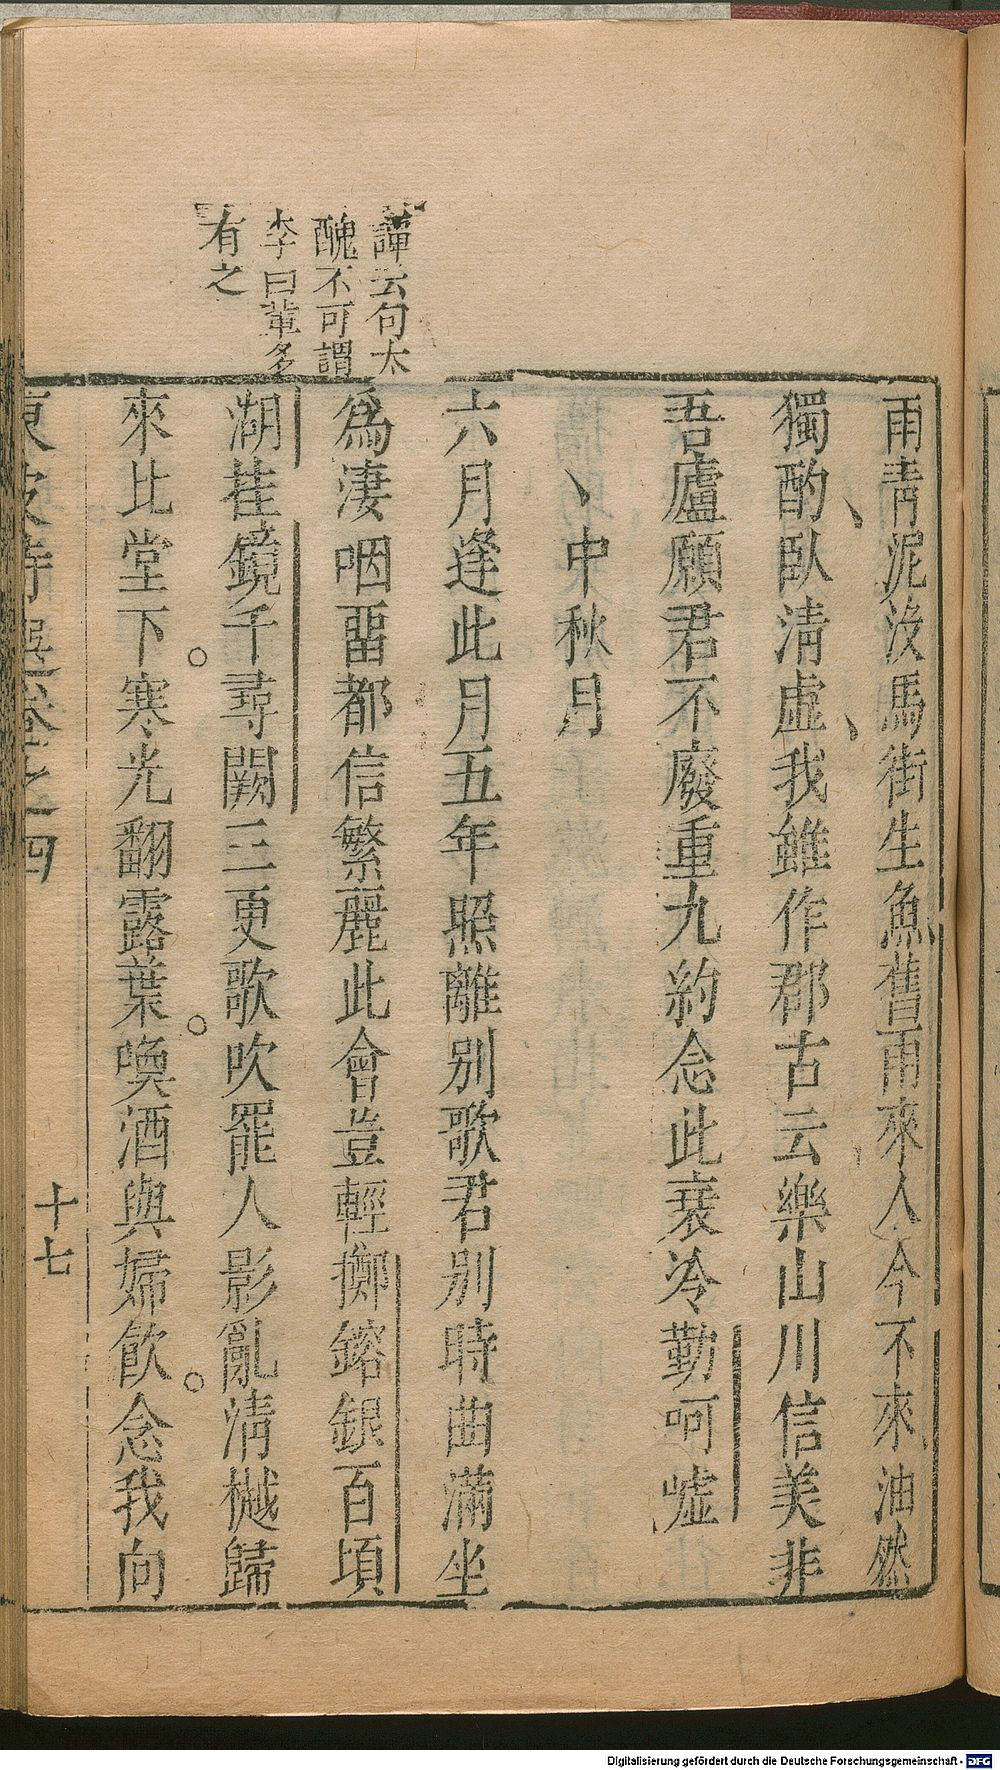 譚云句太
醜不可謂
李曰輩多
有之
雨青泥沒馬街生魚舊雨來人今不來油然
獨酌臥清虛我雖作郡古云樂山川信美非
吾廬願君不廢重九約念此衰冷勤呵噓
中秋月
六月逢此月五年照離別歌君別時曲滿坐
爲淒咽畱都信繁麗此會豈輕擲鎔銀百頃
湖挂鏡千尋闕三更歌吹罷人影亂清樾歸
來比堂下寒光翻露葉喚酒與婦飲念我向
東坡詩選卷之四
十七
Digitalisierung gefördert durch die Deutsche Forschungsgemeinschaft - DFG